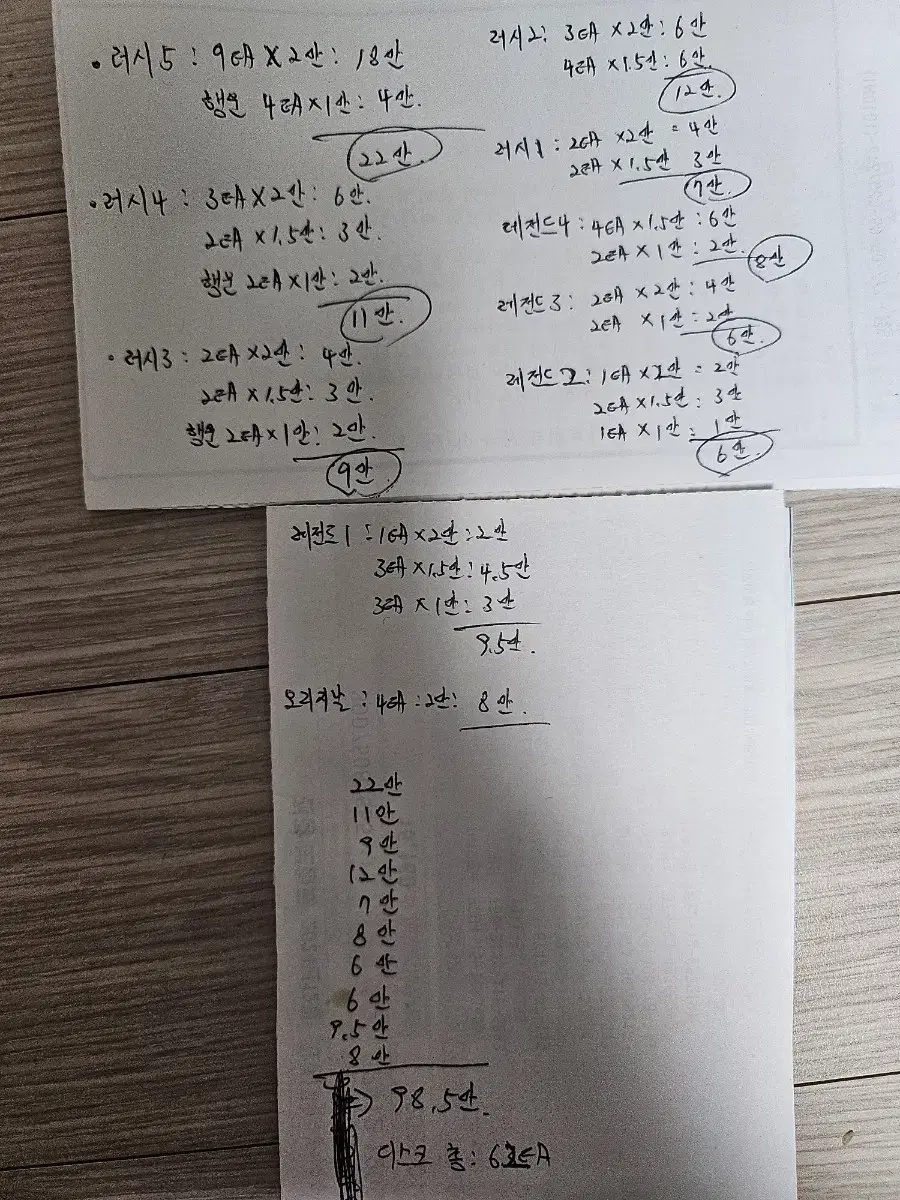 • 러시5 : 9EA X 2만 : 18만
행운 4EA X 1만 : 4만.
22만.
• 러시4 : 3EA X 2만 : 6만.
2EA X 1.5만 : 3만.
행운 2EA X 1만 : 2만.
11만.
• 러시3 : 2EA X 2만 : 4만.
2EA X 1.5만 : 3만.
행운 2EA X 1만 : 2만.
9만.
러시2 : 3EA X 2만 : 6만
4EA X 1.5만 : 6만.
12만.
러시1 : 2EA X 2만 = 4만
2EA X 1.5만 3만
7만.
레전드4 : 4EA X 1.5만 : 6만
2EA X 1만 : 2만.
8만
레전드3 : 2EA X 2만 : 4만
2EA X 1만 = 2만
6만.
레전드2 : 1EA X 2만 = 2만
2EA X 1.5만 : 3만
1EA X 1만 : 1만
6만.
레전드1 : 1EA X 2만 : 2만
3EA X 1.5만 : 4.5만
3EA X 1만 : 3만
9.5만.
오리지날 : 4EA : 2만 : 8만.
22만
11만
9만
12만
7만
8만
6만
6만
9.5만
8만
=> 98.5만.
디스크 총 : 6EA